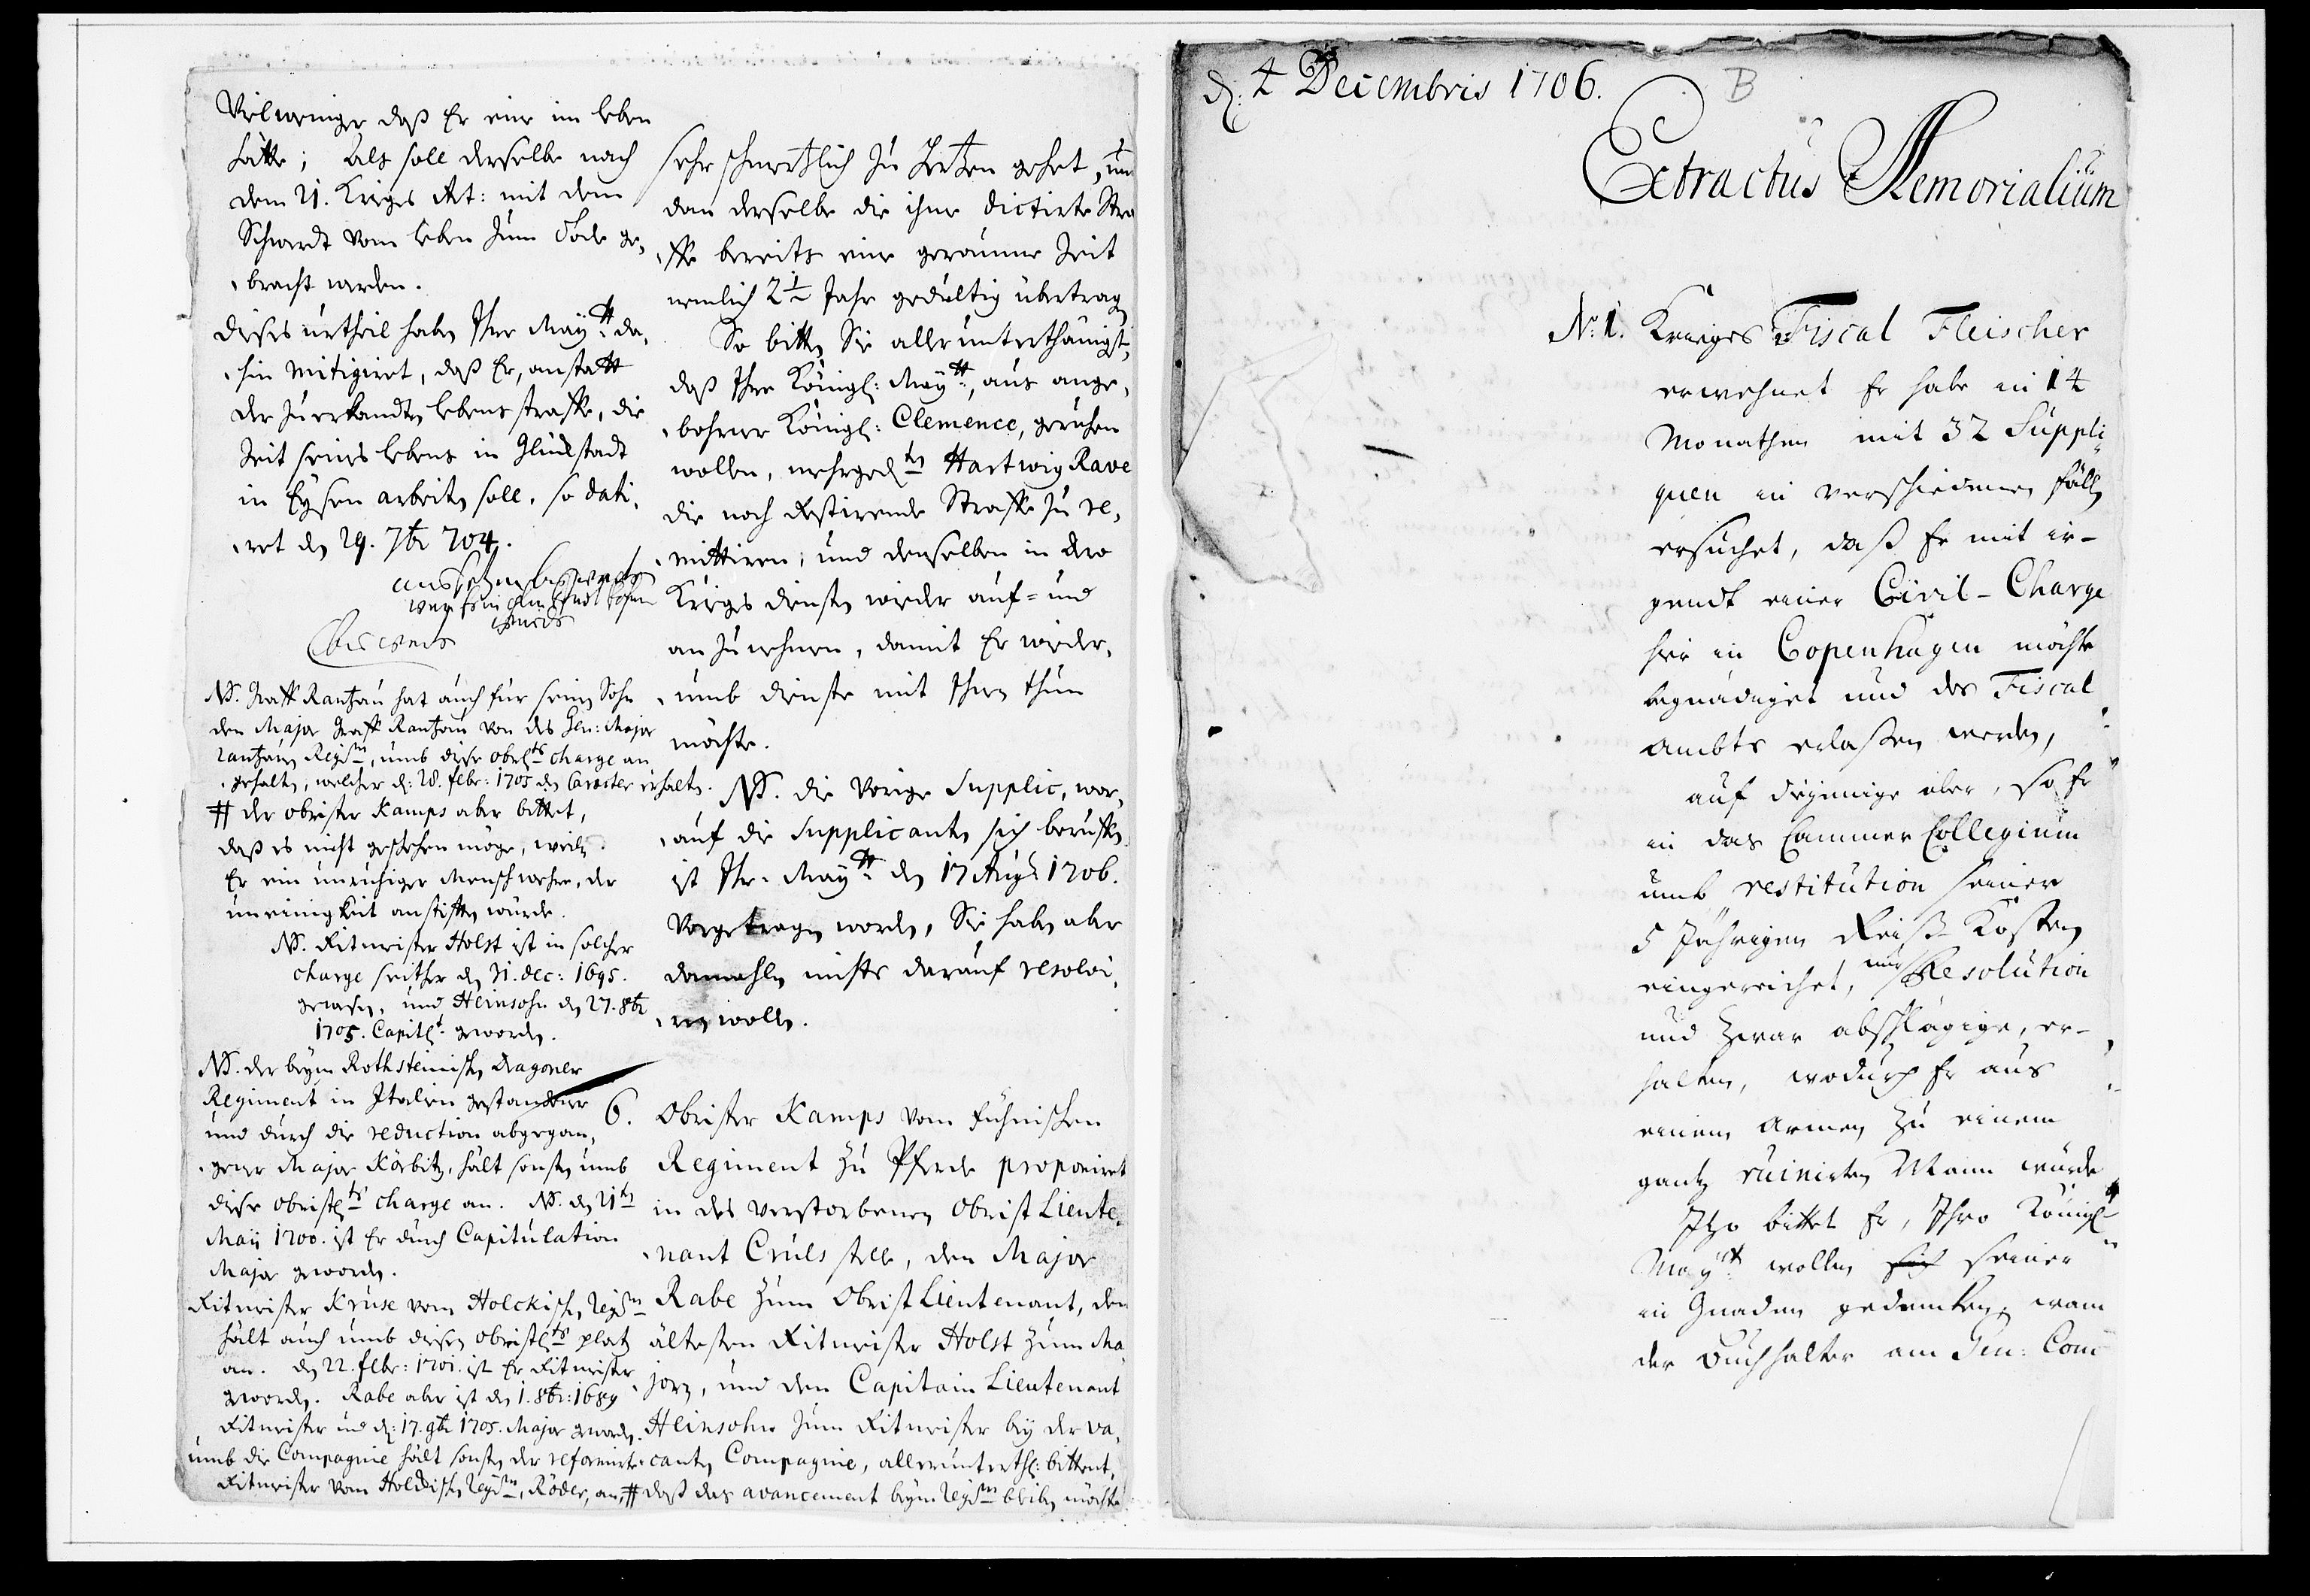 Vielweniger daß Er eine im leben
hätte; Als soll derselbe nach
dem 21. Krieges Art: mit dem
Schwerdt vom leben zum Tode ge,
bracht werden.
dieses urtheil haben Ihre Maytt da,
hin mitigiret, daß Er, anstatt
der zuerkandten lebens straffe, die
Zeit seines lebens in Glückstadt
in Eysen arbeiten soll, so dati,
ret den 29. 7br 704.
NB. Graff Rantzau hat auch für seinen Sohn
den Major Graff Rantzau von des Gen: Major
Rantzauen Regimt, umb diese obristl. charge an
gehalten, welcher d: 28. febr: 1705 den Caracter erhalten.
# der obrister Kamps aber bittet,
daß es nicht geschehen möge, weiln
Er ein unruhiger Mensch wehre, der
uneinigkeit anstifften würde.
NB. Ritmeister Holst ist in solcher
charge seither den 31. dec: 1695.
gewesen, und Heinsohn den 27. 8br
1705. Capitlt. geworden.
NB. der beym Rothsteinischen Dragoner
Regiment in Italien gestandener
und durch die reduction abgegan,
gener Major Körbitz, hält sonsten umb
diese obristlts charge an. NB. den 21ten
May 1700. ist Er durch Capitulation
Major geworden.
Ritmeister Kruse vom Holckischen Regimt
hält auch umb diesen obristlts platz
an. den 22. febr: 1701. ist Er Ritmeister
geworden. Rabe aber ist den 1. 8br: 1689
Ritmeister und d: 17. 9br 1705. Major geworden.
umb die Compagnie hält sonsten der reformirte
Ritmeister vom Holckischen Regimt, Röder, an, #
sehr schmertzlich zu Hertzen gehet, und
dan derselbe die ihme dictirte Stra
ffe bereits eine geraume Zeit
nemlich 2½ Jahr gedultig übertragen
So bitten Sie allerunterthänigst,
daß Ihre Königl: Maytt, aus ange,
bohrner Königl: Clemence, geruhen
wollen, mehrgedten Hartwig Rave
die noch restirende Straffe zu re,
mittiren; und denselben in dero
Kriegs diensten wieder auf- und
an zu nehmen, damit Er wieder,
umb dienste mit Ihnen thun
möchte.
NB. die vorige Supplic, wor,
auf die Supplicanten sich beruffen
ist Ihr. Maytt den 17 Aug. 1706.
vorgetragen worden, Sie haben aber
damahlen nichts darauf resolvi,
ren wollen.
6. Obrister Kamps vom fühnischen
Regiment zu Pferde proponiret
in des verstorbenen Obrist Lieute,
nant Cruls stelle, den Major
Rabe zum Obrist Lieutenant, den
ältesten Ritmeister Holst zum Ma,
jorn, und den Capitain Lieutenant
Heinsohn zum Ritmeister bey der va,
canten Compagnie, allerunterth: bittent,
daß das avancement beym Regimt bleiben möchte
d. 4 Decembris 1706.
B
Extractus Memorialium
No: 1. Krieges Fiscal Fleischer
erwehnet Er habe in 14
Monathen mit 32 Suppli,
quen in verschiedenen fällen
ersuchet, daß Er mit ir-
gendt einer Civil-Charge
hier in Copenhagen möchte
begnädiget und des Fiscal
Ambts erlaßen werden,
auf diejenige aber, so Er
in das Cammer Collegium
umb restitution seiner
5 Jährigen Reiß-Kosten
eingereichet, nur Resolution
und zwar abschlägige, er-
halten, wodurch Er aus
einem Armen zu einem
gantz ruinirten Mann würde
Itzo bittet Er, Ihro Königl
Maytt wollen sich seiner
in Gnaden gedencken, wann
der Buchhalter am Gen: Com